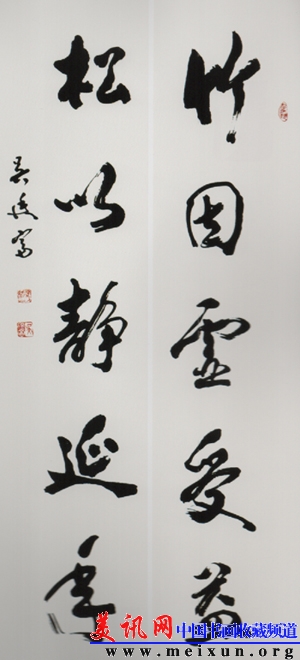 竹因虚受益
松以静延年
吴延富
美讯网 中国书画收藏频道
www.meixun.org